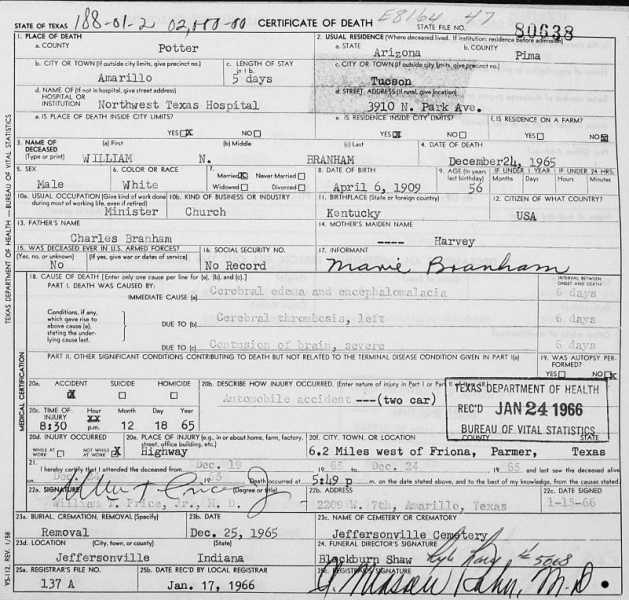 STATE OF TEXAS 188-01-2 02,   -00 CERTIFICATE OF DEATH E8164 47 STATE FILE NO. 80638
1. PLACE OF DEATH
a. COUNTY Potter
2. USUAL RESIDENCE (Where deceased lived. If institution: residence before admission)
a. STATE Arizona b. COUNTY Pima
b. CITY OR TOWN (If outside city limits, give precinct no.) Amarillo
c. LENGTH OF STAY in 1 b. 5 days
c. CITY OR TOWN (If outside city limits, give precinct no.) Tucson
d. NAME OF (If not in hospital, give street address) HOSPITAL OR INSTITUTION Northwest Texas Hospital
d. STREET ADDRESS (If rural, give location) 3910 N. Park Ave.
e. IS PLACE OF DEATH INSIDE CITY LIMITS? YES X NO
e. IS RESIDENCE INSIDE CITY LIMITS? YES X NO
f. IS RESIDENCE ON A FARM? YES NO X
3. NAME OF DECEASED (Type or print) (a) First WILLIAM (b) Middle N. (c) Last BRANHAM
4. DATE OF DEATH December 24, 1965
5. SEX Male
6. COLOR OR RACE White
7. Married X Never Married Widowed Divorced
8. DATE OF BIRTH April 6, 1909
9. AGE (In years last birthday) 56 IF UNDER 1 YEAR Months Days IF UNDER 24 HRS. Hours Minutes
10a. USUAL OCCUPATION (Give kind of work done during most of working life, even if retired) Minister
10b. KIND OF BUSINESS OR INDUSTRY Church
11. BIRTHPLACE (State or foreign country) Kentucky
12. CITIZEN OF WHAT COUNTRY? USA
13. FATHER'S NAME Charles Branham
14. MOTHER'S MAIDEN NAME ---- Harvey
15. WAS DECEASED EVER IN U.S. ARMED FORCES? (Yes, no, or unknown) No (If yes, give war or dates of service)
16. SOCIAL SECURITY NO. No Record
17. INFORMANT Marie Branham
18. CAUSE OF DEATH [Enter only one cause per line for (a), (b), and (c).]
INTERVAL BETWEEN ONSET AND DEATH
PART I. DEATH WAS CAUSED BY:
IMMEDIATE CAUSE (a) Cerebral edema and encephalomalacia 6 days
Conditions, if any, which gave rise to above cause (a), stating the underlying cause last.
DUE TO (b) Cerebral thrombosis, left 6 days
DUE TO (c) Contusion of brain, severe 6 days
PART II. OTHER SIGNIFICANT CONDITIONS CONTRIBUTING TO DEATH BUT NOT RELATED TO THE TERMINAL DISEASE CONDITION GIVEN IN PART I(a)
19. WAS AUTOPSY PERFORMED? YES NO X
20a. ACCIDENT X SUICIDE HOMICIDE
20b. DESCRIBE HOW INJURY OCCURRED. (Enter nature of injury in Part I or Part II
Automobile accident ---(two car)
TEXAS DEPARTMENT OF HEALTH
REC'D JAN 24 1966
BUREAU OF VITAL STATISTICS
20c. TIME OF INJURY Hour 8:30 p.m. Month 12 Day 18 Year 65
20d. INJURY OCCURRED WHILE AT WORK NOT WHILE AT WORK X
20e. PLACE OF INJURY (e.g., in or about home, farm, factory, street, office building, etc.) Highway
20f. CITY, TOWN, OR LOCATION COUNTY STATE
6.2 Miles west of Friona, Parmer, Texas
21. I hereby certify that I attended the deceased from Dec. 19 1965 to Dec. 24 1965. and last saw the deceased alive
Death occurred at 5:49 p m. on the date stated above, and to the best of my knowledge, from the causes stated.
22a. SIGNATURE (Degree or title) William T. Price, Jr., M. D.
22b. ADDRESS 2209 W. 7th, Amarillo, Texas
22c. DATE SIGNED 1-15-66
23a. BURIAL, CREMATION, REMOVAL (Specify) Removal
23b. DATE Dec. 25, 1965
23c. NAME OF CEMETERY OR CREMATORY Jeffersonville Cemetery
23d. LOCATION (City, town, or county) (State) Jeffersonville Indiana
24. FUNERAL DIRECTOR'S SIGNATURE Blackburn Shaw # 5068
25a. REGISTRAR'S FILE NO. 137 A
25b. DATE REC'D BY LOCAL REGISTRAR Jan. 17, 1966
25c. REGISTRAR'S SIGNATURE M.D.
MEDICAL CERTIFICATION
TEXAS DEPARTMENT OF HEALTH — BUREAU OF VITAL STATISTICS
VS-112 REV. 1/58